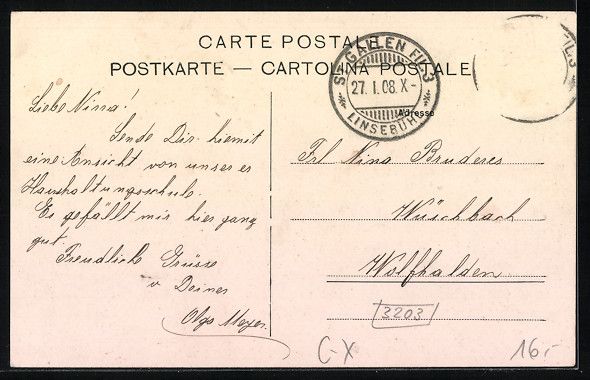 CARTE POSTALE
POSTKARTE — CARTOLINA POSTALE
ST. GALLEN FIL. 3
27. I. 08. X-
LINSEBÜHL
FIL. 3
Adresse
Liebe Nina!
Sende Dir hiemit
eine Ansicht von unserer
Haushaltungsschule.
Es gefällt mir hier ganz
gut.
Freundliche Grüsse
v Deiner
Olga Meyer.
Frl Nina Bruderer
Wolfhalden
3203
C-X
16.-